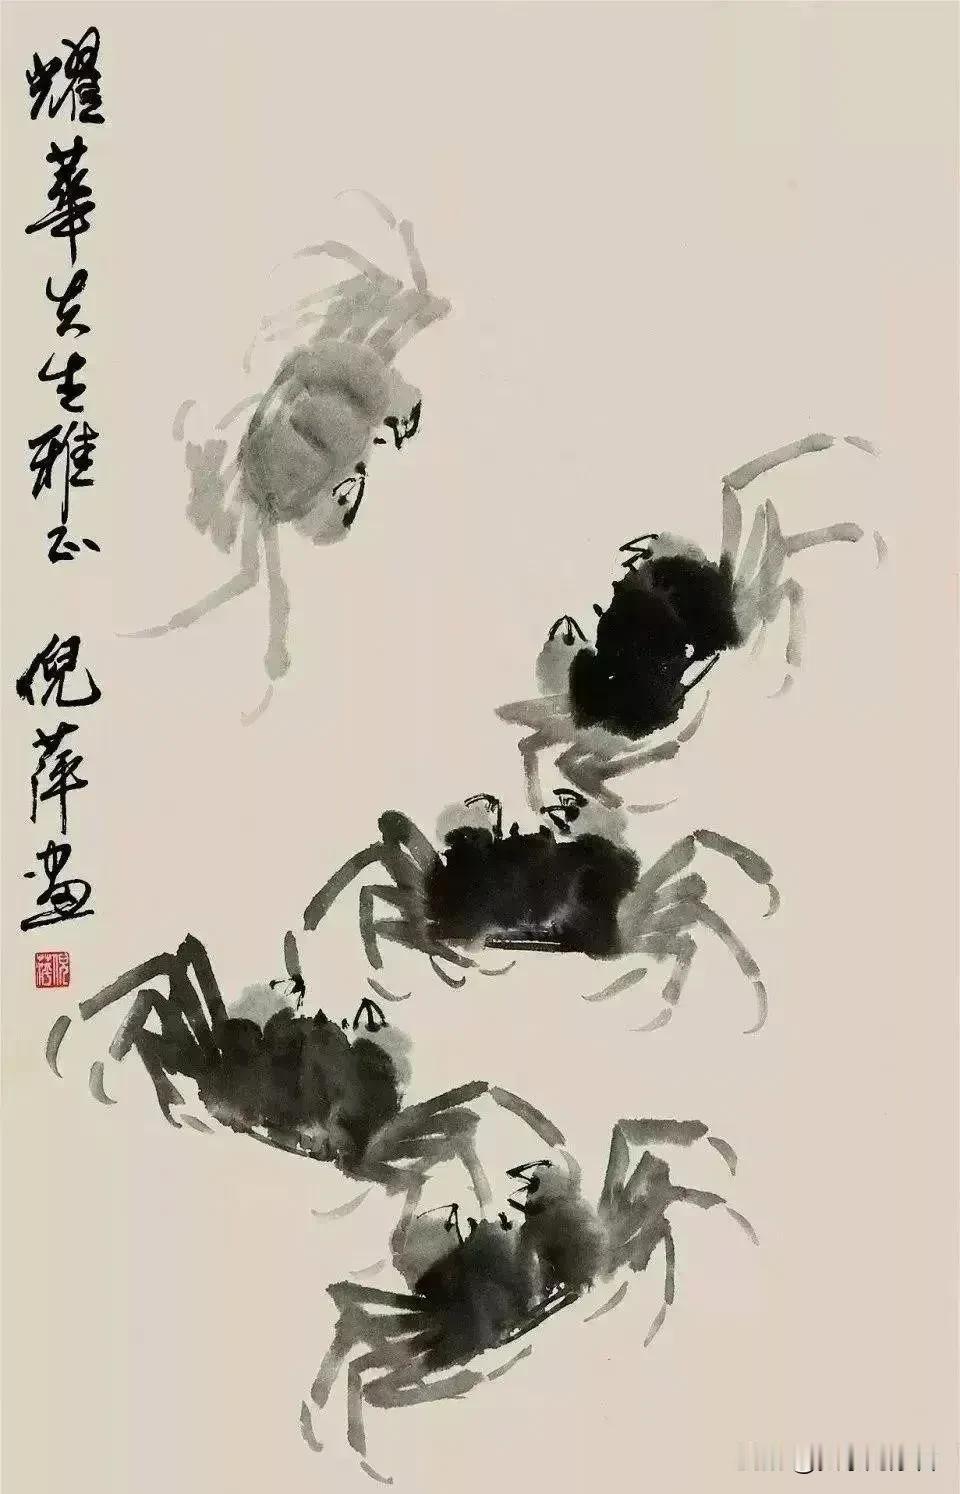 耀華先生雅正 倪萍畫
倪萍